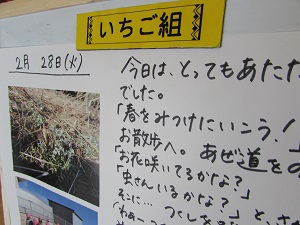 いちご組
2月 28日(火)
今日は、とってもあたた
でした。
「春をみつけにいこう!
お散歩へ。あぜ道をの
「お花咲いてるかな?
「虫さんいるかな?」と、
そこに…つくしを
「わぁーっ